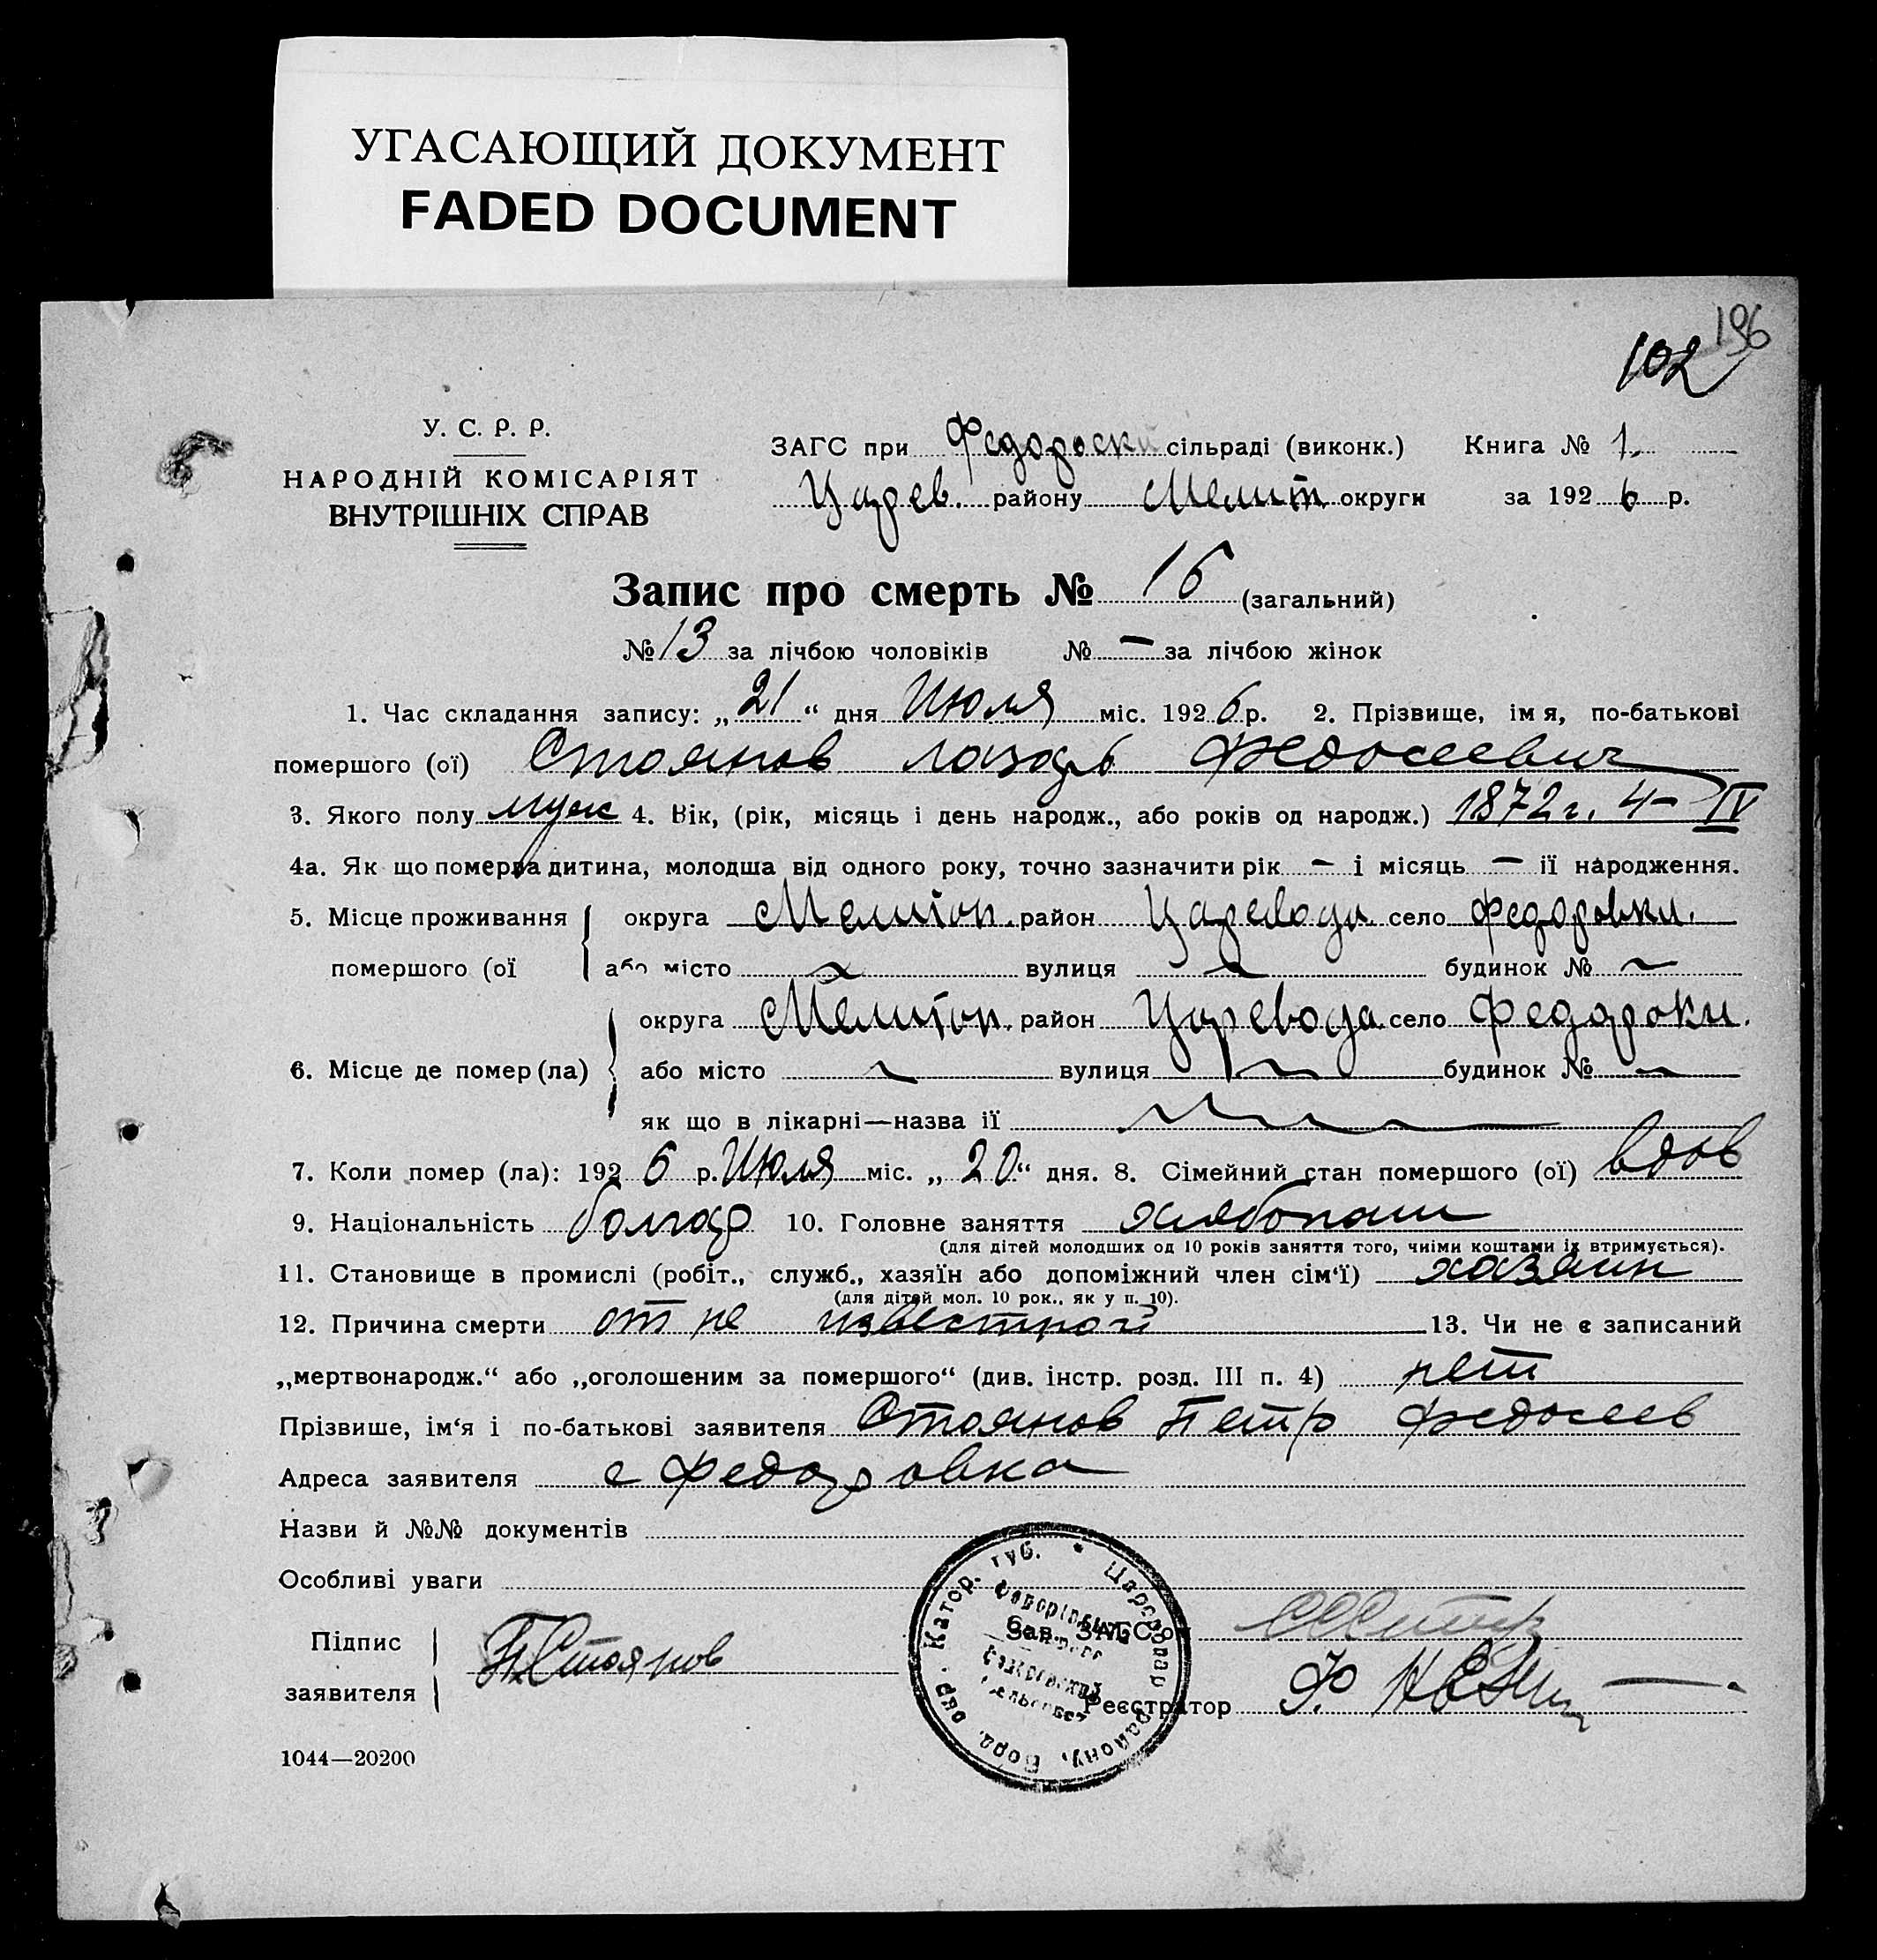 УГАСАЮЩИЙ ДОКУМЕНТ
FADED DOCUMENT
196
102
У. С. Р. Р.
НАРОДНІЙ КОМІСАРІЯТ
ВНУТРІШНІХ СПРАВ
ЗАГС при Федороски сільраді (виконк.) Книга № 1.
Царев. району Мелит округи за 1926 р.
Запис про смерть № 16 (загальний)
№ 13 за лічбою чоловіків № — за лічбою жінок
1. Час складання запису: „21“ дня Июля міс. 1926 р. 2. Прізвище, імя, по-батькові
помершого (ої) Стоянов Лазарь Федосеевич
3. Якого полу муж 4. Вік, (рік, місяць і день народж., або років од народж.) 1872 г. 4– IV
4а. Як що померла дитина, молодша від одного року, точно зазначити рік — і місяць — її народження.
5. Місце проживання округа Мелитоп. район Царевода. село Федоровки.
помершого (ої або місто вулиця будинок №
округа Мелитоп. район Царевода. село Федороки.
6. Місце де помер (ла) або місто вулиця будинок №
як що в лікарні—назва її
7. Коли помер (ла): 1926 р. Июля міс. „20“ дня. 8. Сімейний стан помершого (ої) вдов
9. Національність болгар 10. Головне заняття хлебопаш
(для дітей молодших од 10 років заняття того, чиїми коштами їх втримується).
11. Становище в промислі (робіт., служб., хазяїн або допоміжний член сім‘ї) хозяин
(для дітей мол. 10 рок., як у п. 10).
12. Причина смерти от не известной 13. Чи не є записаний
„мертвонародж.“ або „оголошеним за помершого“ (див. інстр. розд. III п. 4) нет
Прізвище, ім‘я і по-батькові заявителя Стоянов Петр Федосеев
Адреса заявителя с Федоровка
Назви й №№ документів
Особливі уваги
Підпис
заявителя
П Стоянов
Зав. ЗАГС‘ом
Реєстратор
Катор. губ.
району,
окр.
1044—20200